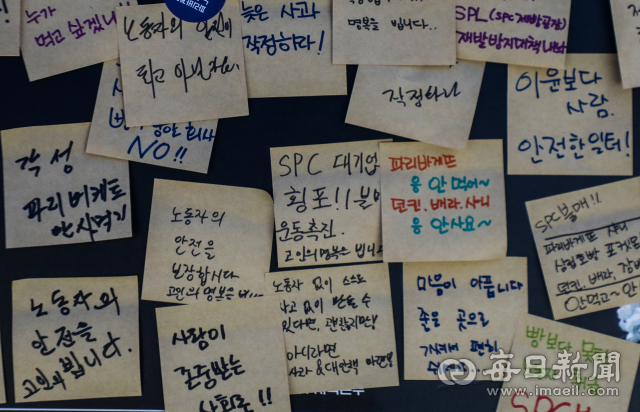 누가
먹고 싶겠니
노동자의 안전이
최고 아닌가요.
늦은 사과
직접하라!
명복을 빕니다..
SPL(SPC 제빵공장)
재발방지대책 내놔
NO!!
직접하나
이윤보다
사람.
안전한 일터!
각성
파리바게트
안사먹기
노동자의
안전을
보장합시다
고인의 명복은
SPC 대기업
횡포!! 불매
운동촉진.
고인의 명복은 빕니다
파리바게뜨
응 안먹어~
던킨, 배라, 샤니
응 안사요~
SPC불매!!
파리바게뜨 샤니
삼립호빵 포켓몬
던킨, 배라,
안먹고
노동자의
안전을
고인의
빕니다.
노동자 없이 스스로
사고 없이 만들 수
있다면, 괜찮겠지만!
아니라면
사과 & 대안책 마련!
마음이 아픕니다
좋은 곳으로
가셔서 편히
사람이
존중받는
사회로!!
빵보다
SPC
每日新聞
www.imaeil.com